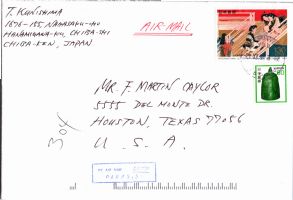 T. KUNISHIMA
1676-155, NAGASAKU-CHO
HANAMIGAWA-KU, CHIBA-SHI
CHIBA-KEN, JAPAN
AIR-MAIL
MR. F. MARTIN CAYLOR
5555 DEL MONTE DR.
HOUSTON, TEXAS 77056
U. S. A.